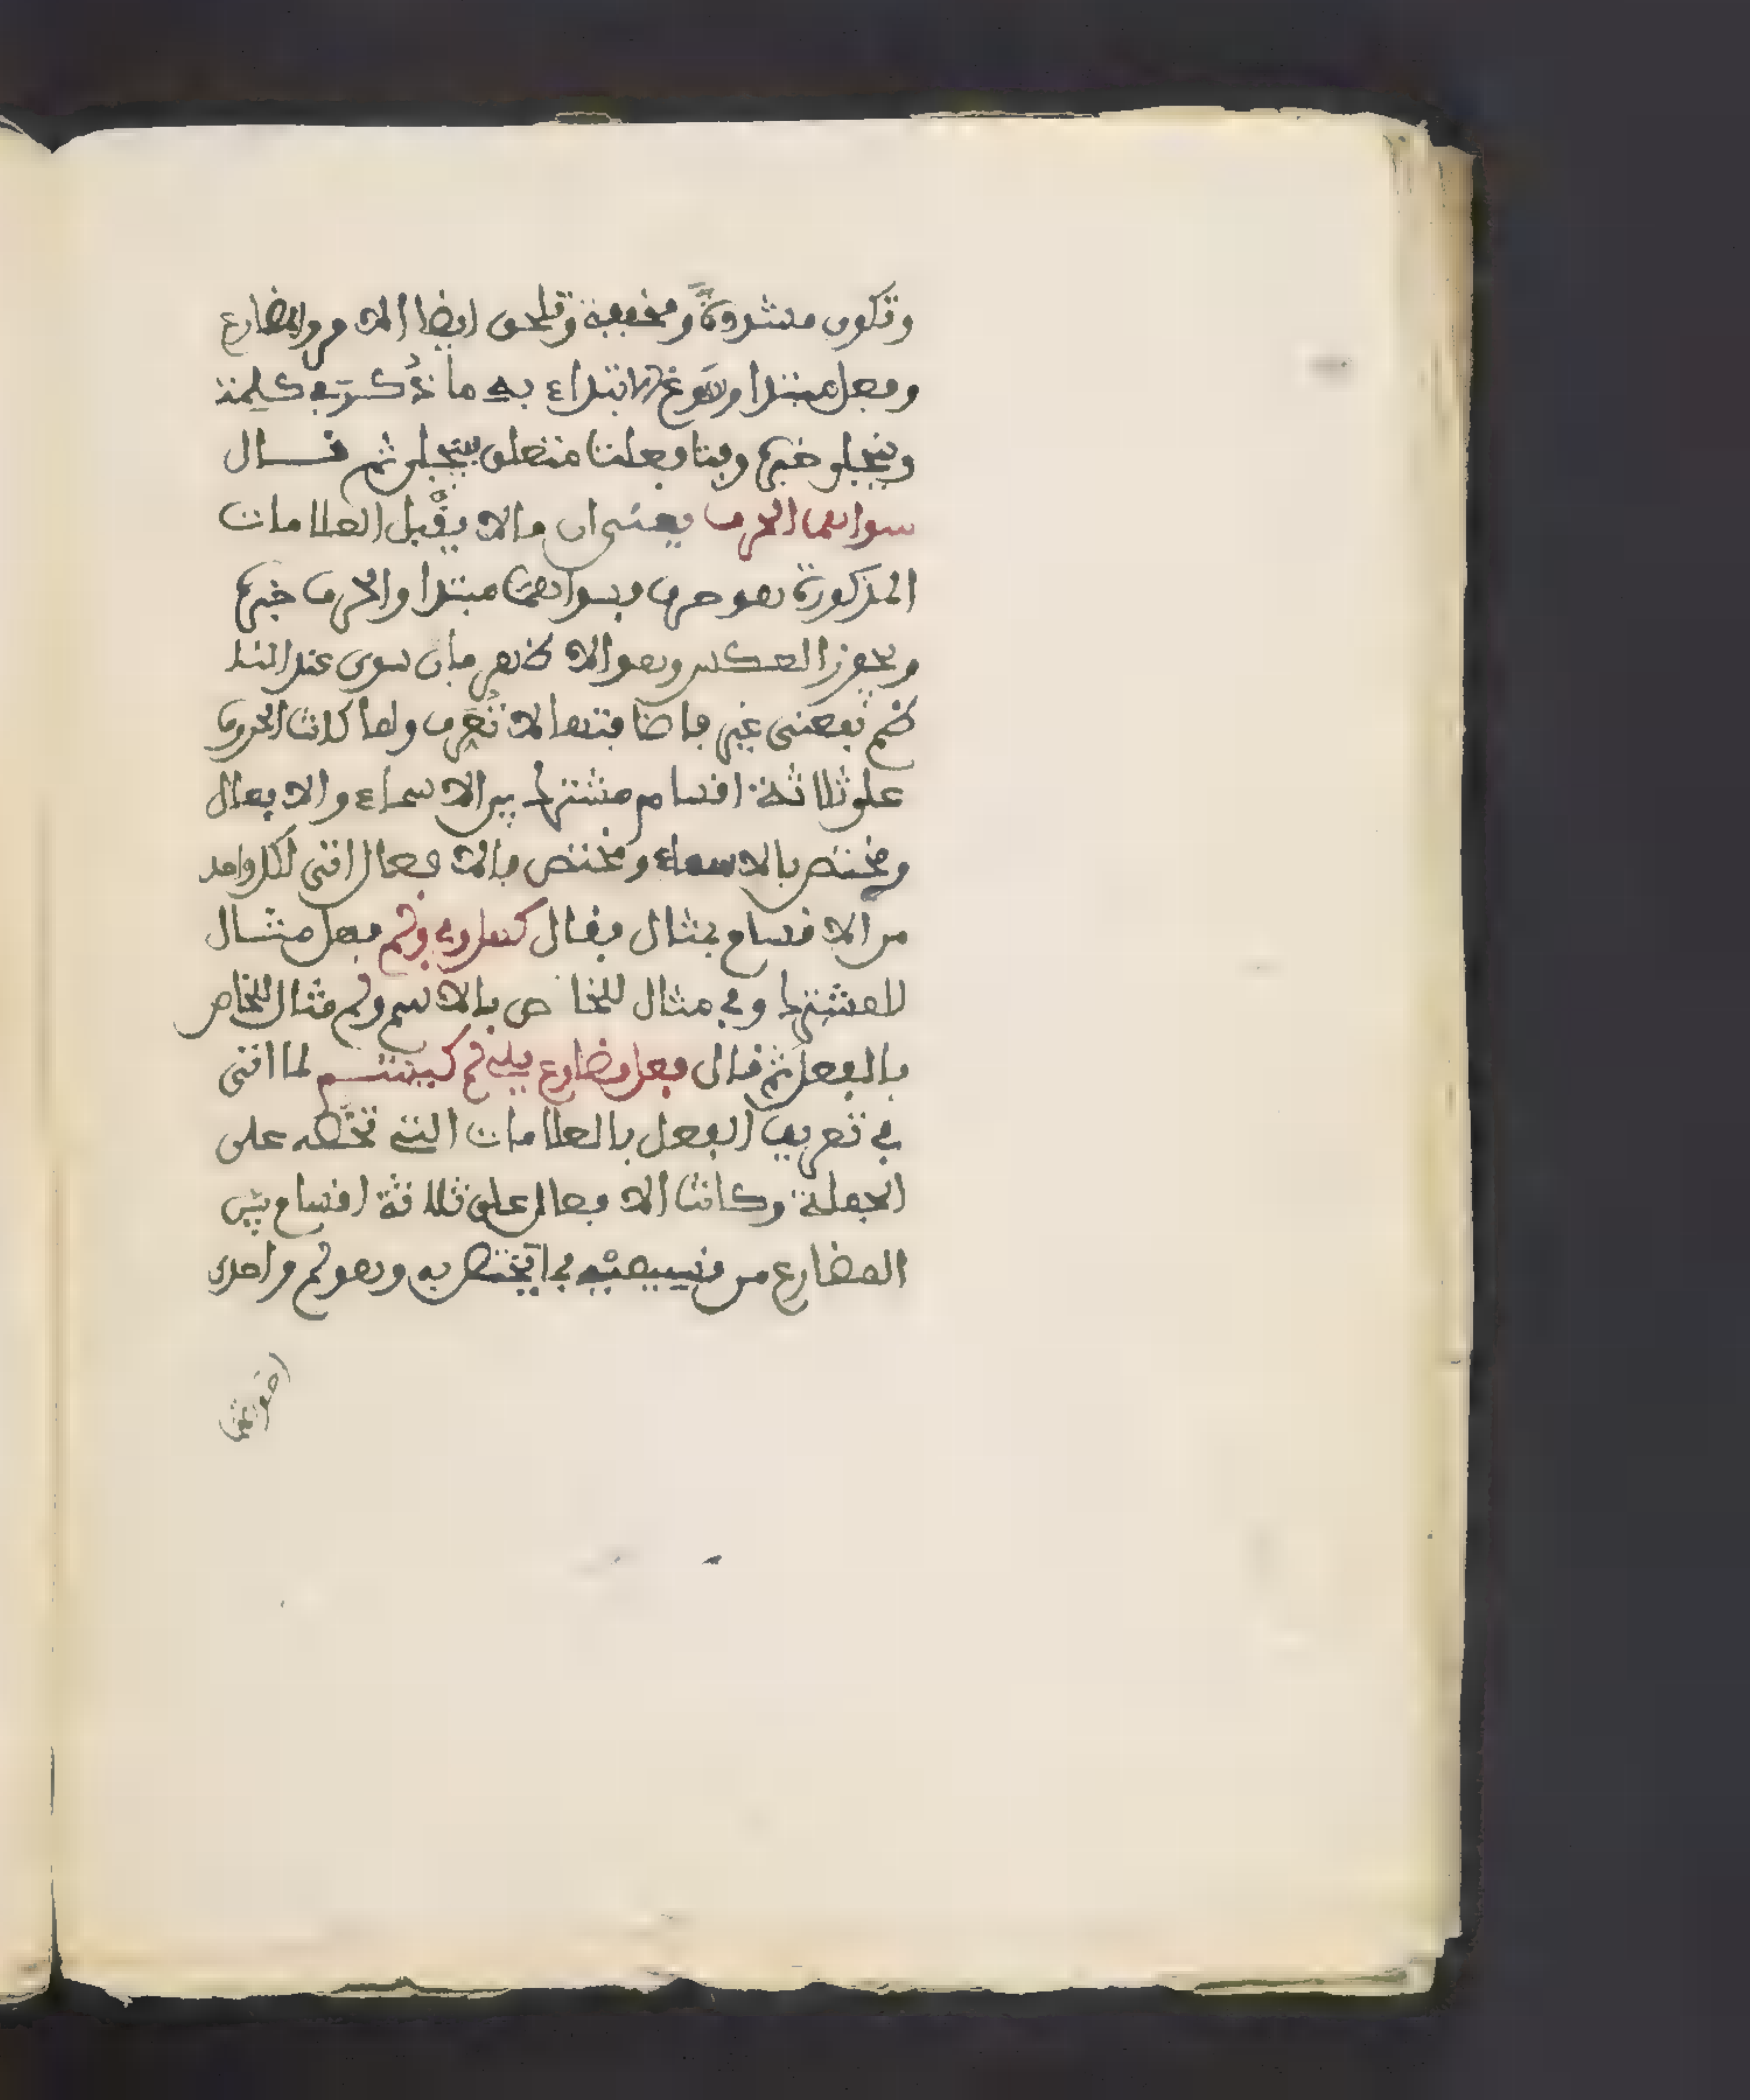 وتكون مشددة ومخففة وتلحق ايضا الامر والمضارع
وفعل مبتدا وسوغ الابتداء به ما ذكر في كلمة
وينجلي خبره وبتا فعلت متعلق بينجلي ثم قــال
سواهما الحرف يعني ان ما لا يقبل العلامات
المذكورة فهو حرف فسواهما مبتدا والحرف خبره
ويجوز العكس وهو الاظهر فان سوى عند النا
ظم بمعنى غير فاضافتها لا تعرف ولما كانت الحروف
على ثلاثة اقسام مشترك بين الاسماء والافعال
ومختص بالاسماء ومختص بالافعال اتى لكل واحد
من الاقسام بمثال فقال كهل وفي ولم فهل مثــال
للمشترك وفي مثال للخاص بالاسم ولم مثال للخاص
بالفعل ثم قال فعل مضارع يلي لم كيشم لما اتى
في تعريف الفعل بالعلامات التي تخصه على
الجملة وكانت الافعال على ثلاثة اقسام بين
المضارع من قسيميه بما يختص به وهو لم واحدى